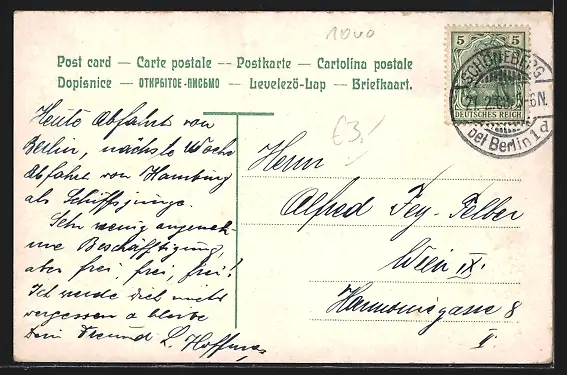 1040
Post card — Carte postale — Postkarte — Cartolina postale
Dopisnice — ОТКРЫТОЕ-ПИСЬМО — Levelező-Lap — Briefkaart.
5 5
DEUTSCHES REICH
SCHÖNEBERG
21.2. 5-6N.
bei Berlin 1 d
£3.
Heute Abfahrt von
Berlin, nächste Woche
Abfahrt von Hamburg
als Schiffsjunge.
Sehr wenig angeneh-
me Beschäftigung,
aber frei, frei, frei!
Ich werde dich nicht
vergessen & bleibe
Dein Freund L. Hoffmann
Herrn
Alfred Fey-Felber
Wien IX.
Harmoniegasse 8